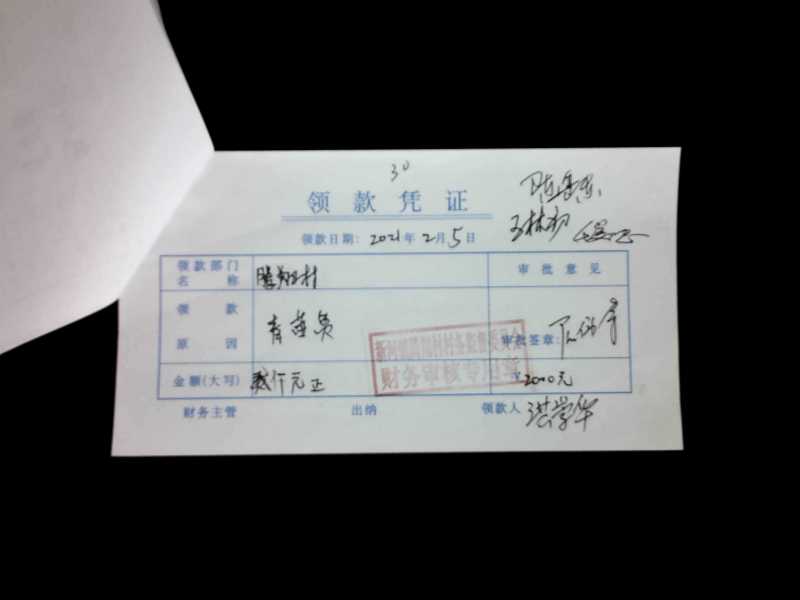 30
领款凭证
领款日期: 2021年2月5日
领款部门名称
审批意见
领款原因
青苗员
审批签章:
财务审核专用章
金额(大写) 贰仟元正
¥2000元
财务主管 出纳 领款人 洪学华